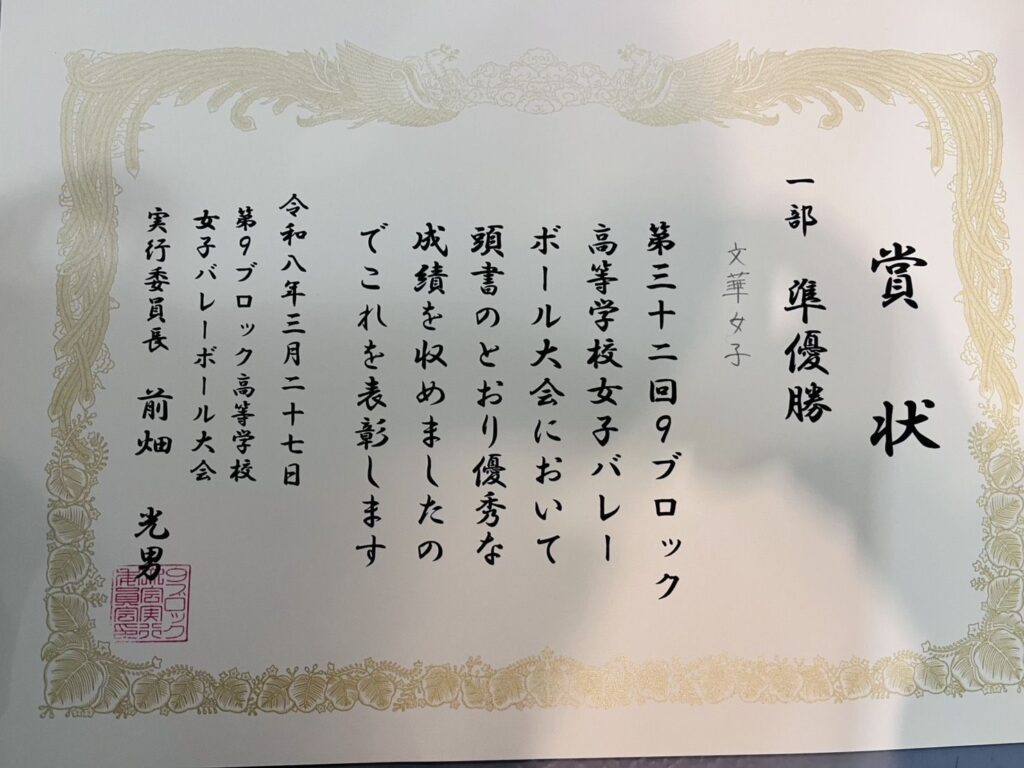 賞状
一部 準優勝
文華女子
第三十二回9ブロック
高等学校女子バレー
ボール大会において
頭書のとおり優秀な
成績を収めましたの
でこれを表彰します
令和八年三月二十七日
第9ブロック高等学校
女子バレーボール大会
実行委員長 前畑 光男